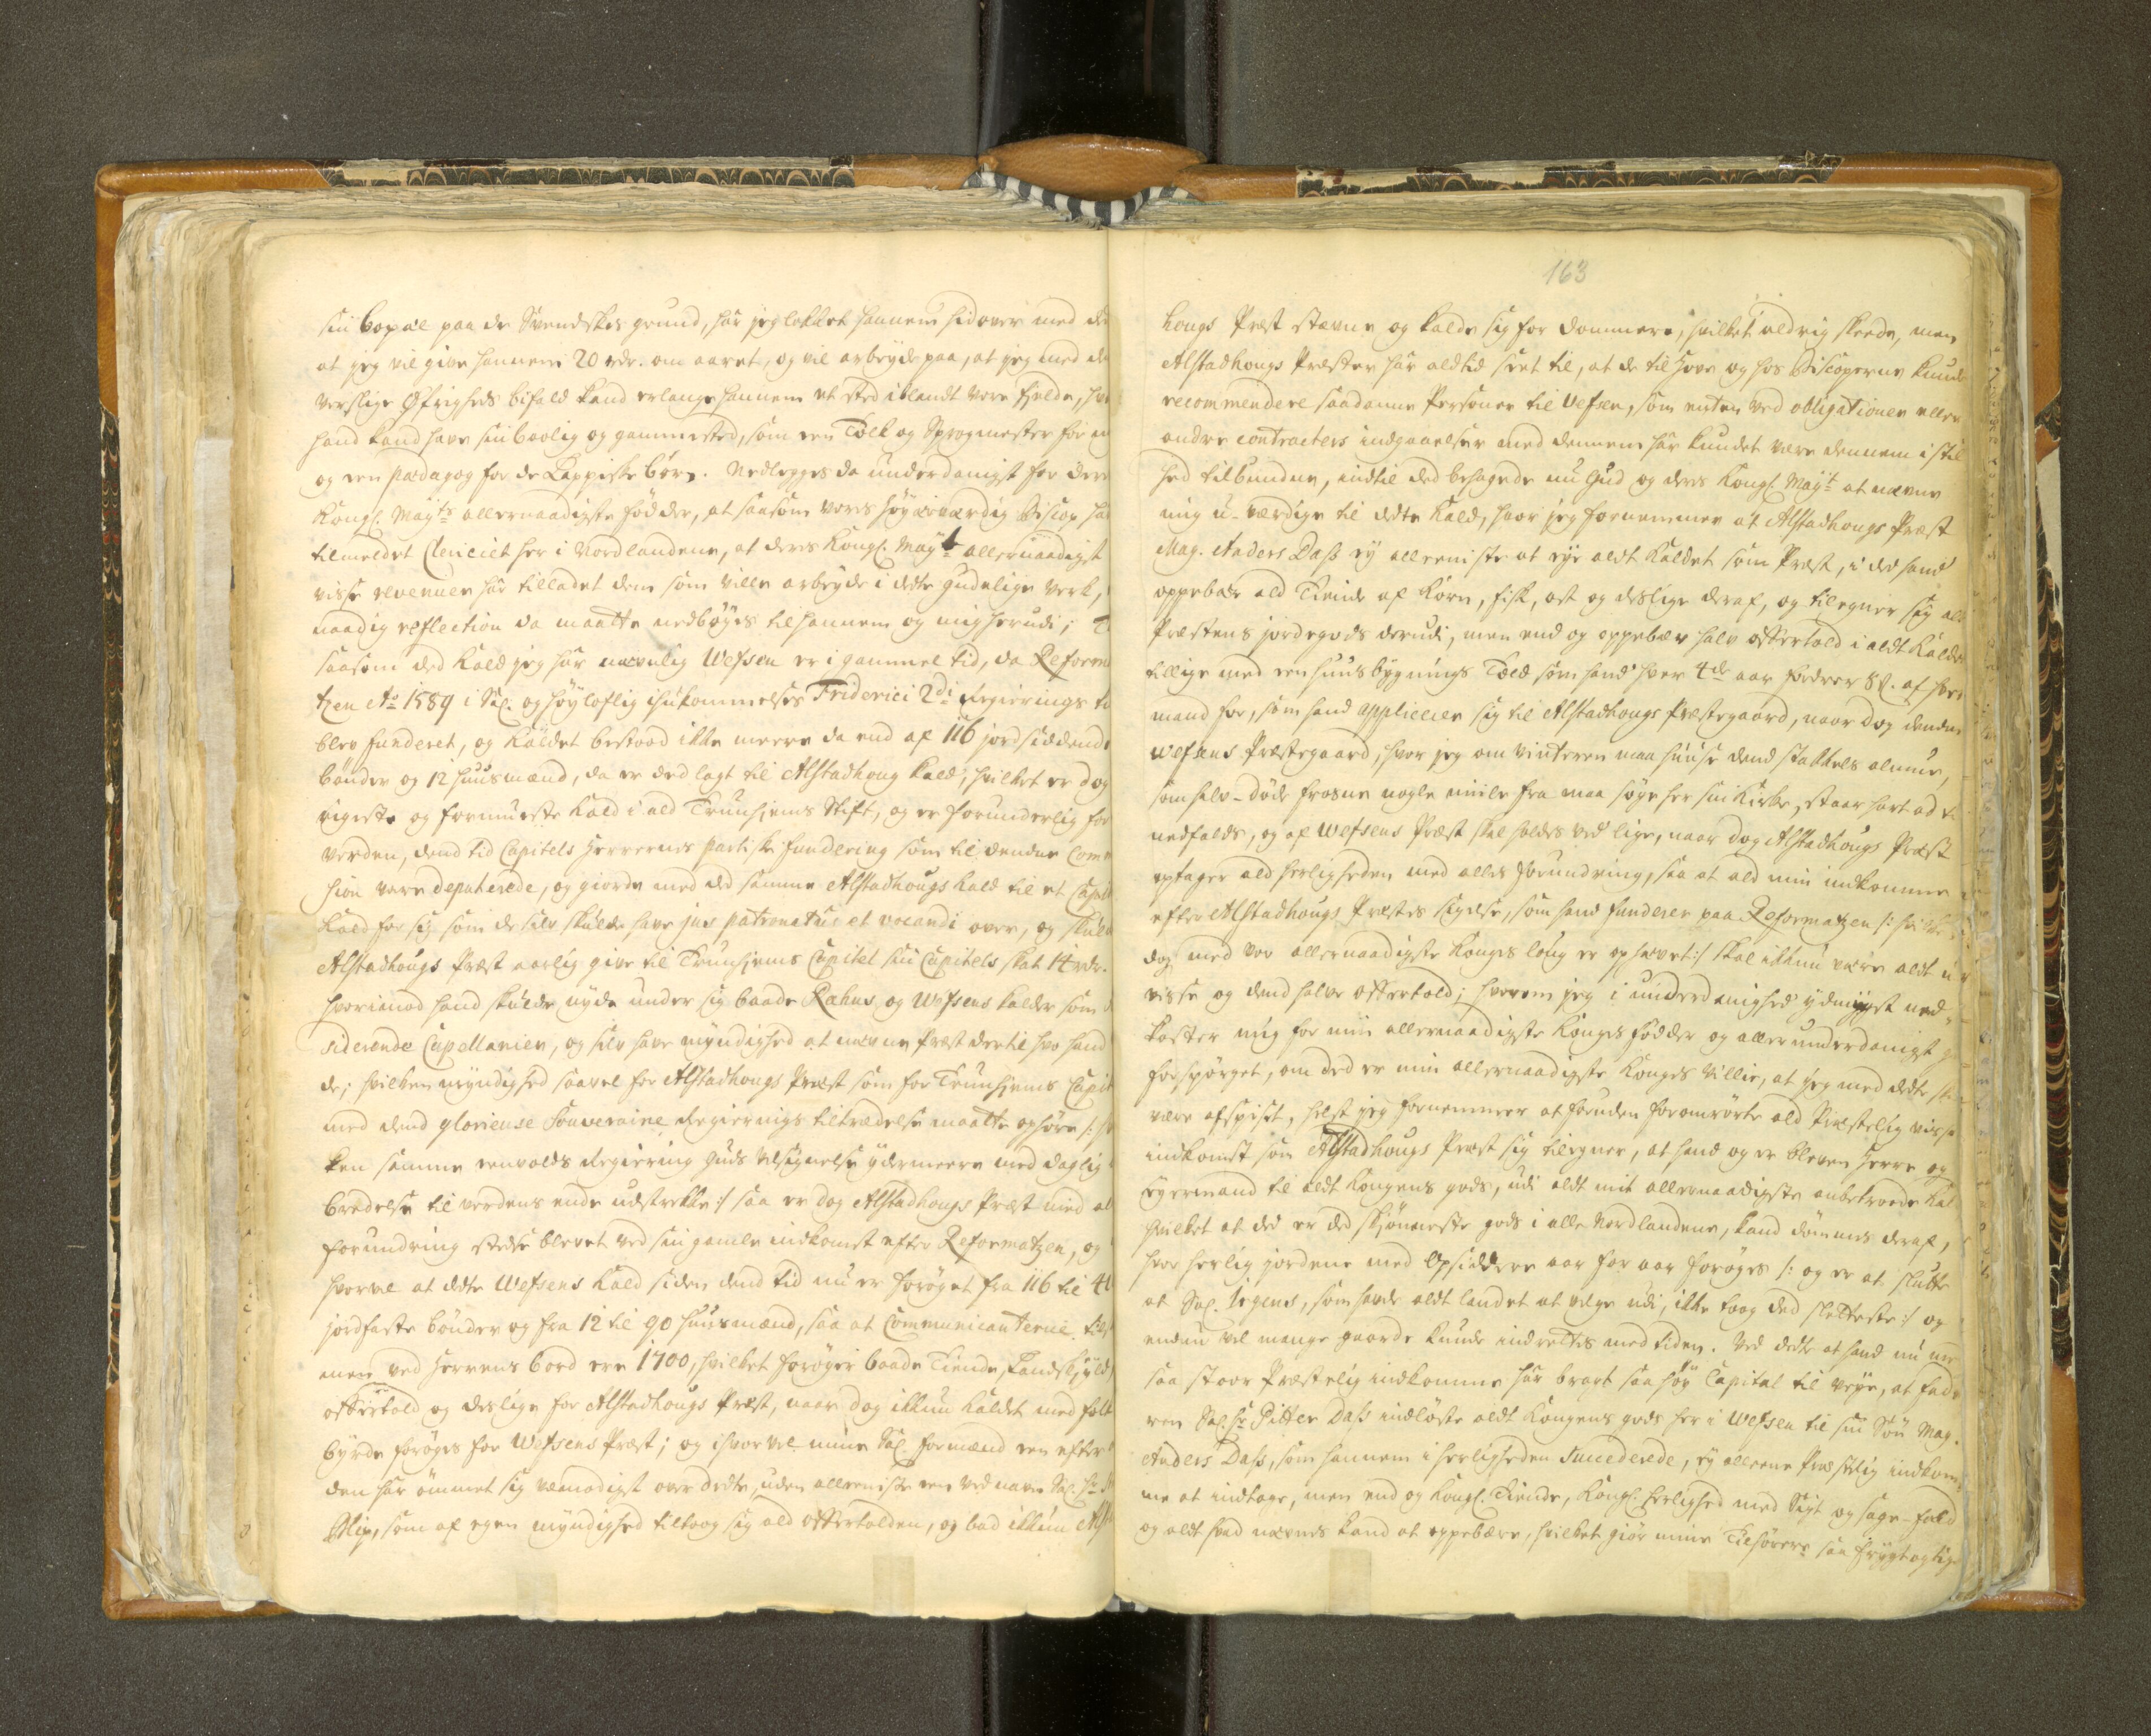 sin bopæl paa de Svendskes grund, har jeg lokket hannem hidover med det
at jeg vil give hannem 20 rdr. om aaret, og vil arbeyde paa, at jeg med de
verslige Øfrigheds bifald kand erlange hannem et sted iblandt vore fielde, hvor
hand kand have sin boelig og gammested, som een Tolk og Sprogmester for mig
og een pædagog for de Lappiske börn. Nedlegges da underdanigst for deres
Kongl. Mayts allernaadigste födder, at saasom vores höyærværdig Biscop har
tilmeldet Clericiet her i Nordlandene, at deres Kongl. Mayt allernaadigst
visse revenuer har tilladet dem som ville arbeyde i dette gudelige verk,
naadig reflection da maatte nedböyes til hannem og mig herudi;
saasom det Kald jeg har nævnlig Wefsen er i gammel tid, da Reforma
tzen Ao 1589 i Sal. og höyloflig ihukommelses Friderici 2di Regierings tid
blev funderet, og Kaldet bestood ikke meere da end af 116 jordsiddende
bönder og 12 huusmænd, da er det lagt til Alstadhoug Kald, hvilket er dog
rigeste og formueste Kald i ald Trunhiems Stift, og er forunderlig for
verden, dend tid Capitels Herrernes partiske fundering som til dendne Com
hion vare deputerede, og giorde med det samme Alstadhougs Kald til et Capit
Kald for sig som de selv skulde have jus patronatus et vocandi over, og skulde
Alstadhougs Præst aarlig give til Trunhiems Capitel sin Capitels skat 14 rdr.
hvorimod hand skulde nyde under sig baade Rahns og Wefsens Kalder som
siderende Capellanier, og selv have myndighed at nævne Præst dertil hvo hand
de; hvilken myndighed saavel for Alstadhougs Præst som for Trunhiems Capit
med dend glorieuse Souveraine Regierings tiltrædelse maatte ophöre /:
ken samme eenvolds Regiering Guds velsignelse ydermeere med daglig
bredelse til verdens ende udstrekke :/ saa er dog Alstadhougs Præst med al
forundring stedse blevet ved sin gamle indkomst efter Reformatzen, og
hvorvel at dette Wefsens Kald siden dend tid nu er foröget fra 116 til 4
jordfaste bönder og fra 12 til 90 huusmænd, saa at Communicanterne til
men ved Herrens bord ere 1700, hvilket foröger baade Tiende, Landskyld,
offertold og deslige for Alstadhougs Præst, naar dog ikkun Kaldet med folk
byrde foröges for Wefsens Præst; og ihvorvel mine Sal. formænd een efter
den har ömmet sig veemodigst over dette, uden alleeniste een ved navn Sal. Hr
Slip, som af egen myndighed tiltoog sig ald offertolden, og bad ikkun Alst
163
hougs Præst stævne og kalde sig for dommere, hvilket aldrig skeede, men
Alstadhougs Præster har altid seet til, at de til Hove og hos Biscoperne kunde
recommendere saadanne Personer til Vefsen, som enten ved obligationer eller
andre contracters indgaaelser med dennem har kundet være dennem i stil
hed tilbundne, indtil det behagede nu Gud og deres Kongl. Mayt at nævne
mig u-værdige til dette Kald, hvor jeg fornemmer at Alstadhougs Præst
Mag. Anders Dass ey alleeniste at eye aldt Kaldet som Præst, i det hand
oppebær ald Tiende af Korn, fisk, ost og deslige deraf, og tilegner sig alt
Præstens jordegods derudi, men end og oppebær halv offertold i aldt Kaldet
tillige med een huusbygnings Told som hand hver 4de aar fordrer 8 s. af hver
mand for, som hand applicerer sig til Alstadhougs Præstegaard, naar dog dendne
Wefsens Præstegaard, hvor jeg om vinteren maa huuse dend stakkels almue,
som halv-döde frosne nogle mile fra maa söge her sin Kirke, staar hart ad
nedfalde, og af Wefsens Præst skal holdes ved lige, naar dog Alstadhougs Præst
optager ald herligheden med alles forundring, saa at ald min indkomme
efter Alstadhougs Præstes sigelse, som hand funderer paa Reformatzen /: hvilke
dog med vor allernaadigste Konges loug er ophævet :/ skal ikkun være aldt u
visse og dend halve offertold; hvorom jeg i underdanighed ydmygst ned-
kaster mig for min allernaadigste Konges födder og allerunderdanigst
forspörget, om det er min allernaadigste Konges villie, at jeg med dette
være afspiist, helst jeg fornemmer at foruden foromrörte ald Præstelig visse
indkomst som Alstadhougs Præst sig tilegner, at hand og er bleven Herre og
eyermand til aldt Kongens gods, udi aldt mit allernaadigste anbetroede Kal
hvilket at det er det skiönneste gods i alle Nordlandene, kand dömmes deraf,
hvor herlig jordene med Opsiddere aar for aar foröges /: og er at slutte
at Sal. Irgens, som havde aldt landet at velge udi, ikke toog det sletteste :/ og
endnu vel mange gaarde kunde indrettes med tiden. Ved dette at hand nu
saa stoor Præstelig indkomme har bragt saa höy Capital til veye, at fade
ren Sal. Hr Pitter Dass indlöste aldt Kongens gods her i Wefsen til sin Sön Mag.
Anders Dass, som hannem i herligheden succederede, ey alleene Præstelig indkom-
me at indtage, men end og Kongl. Tiende, Kongl. herlighed med Sigt og sage-fald
og aldt hvad nævnes kand at oppebære, hvilket giör mine Tilhörere saa frygtagtige